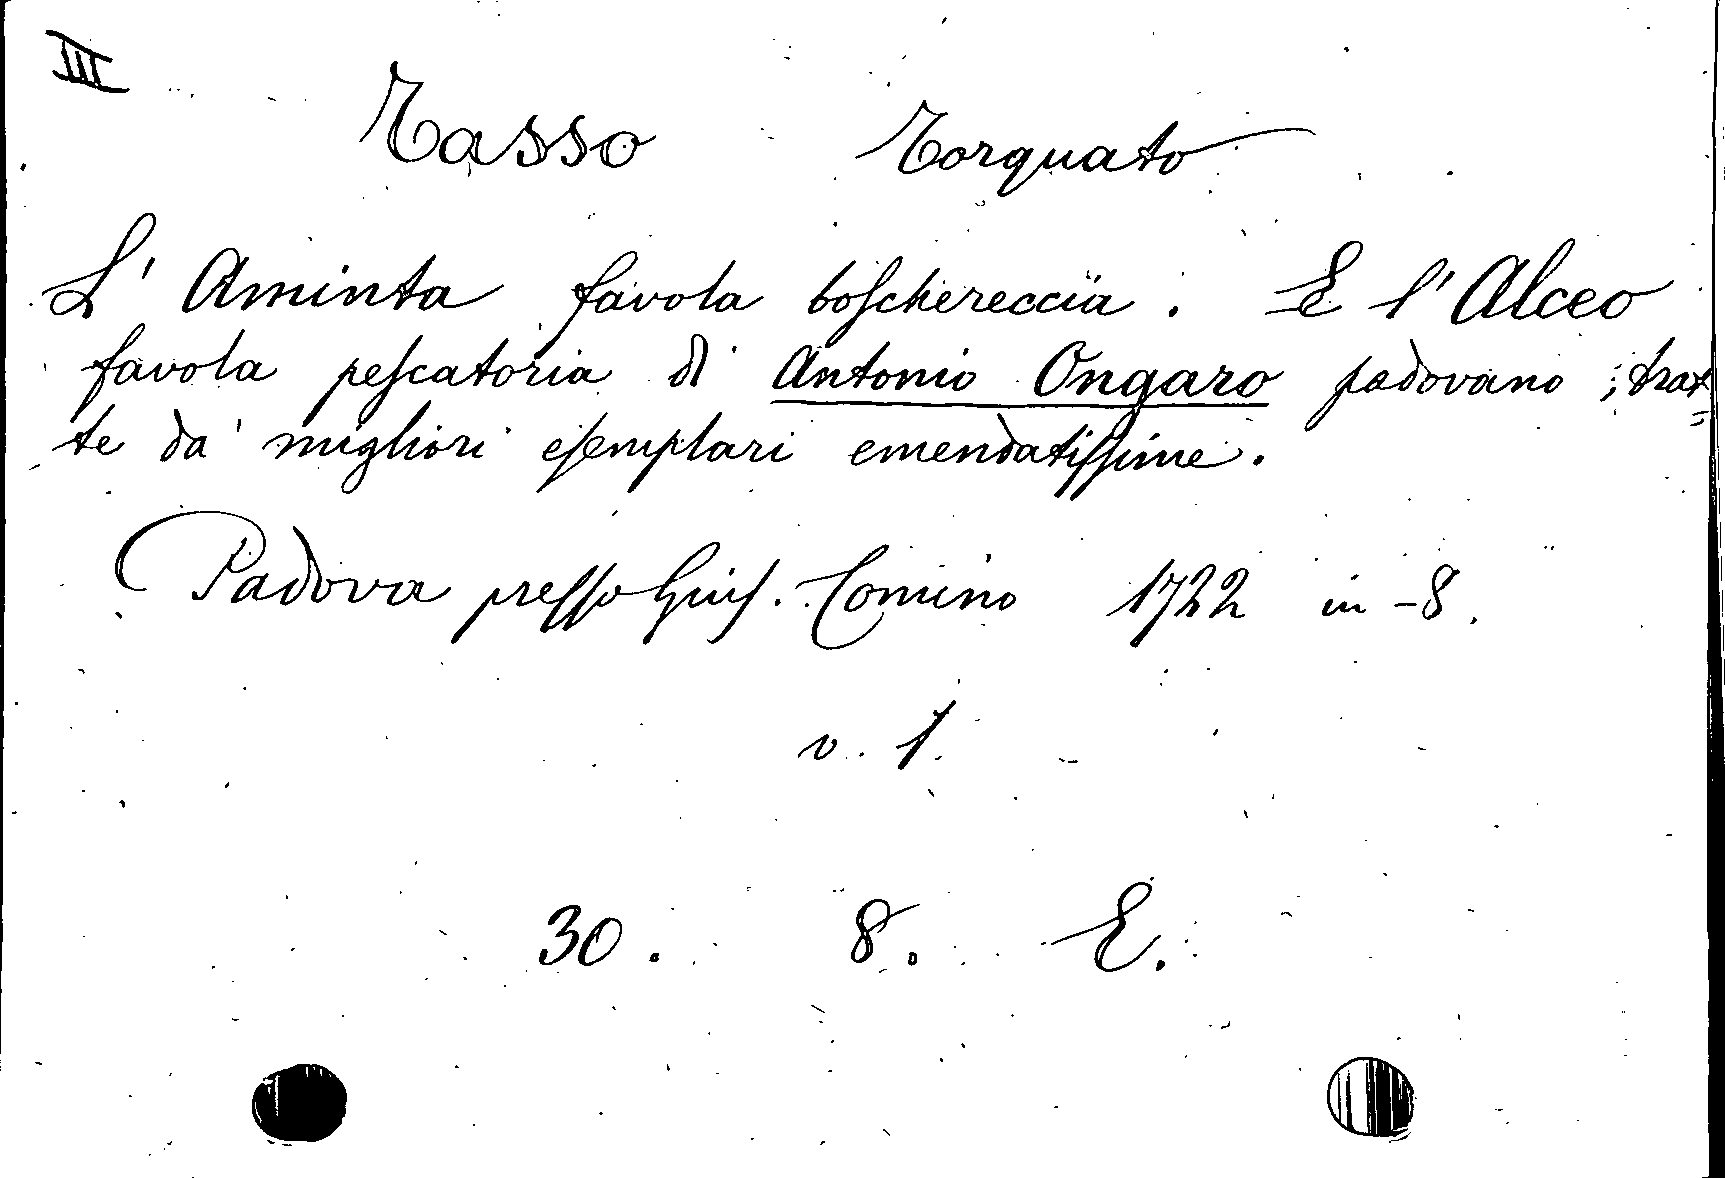 III
Tasso Torquato
L' Aminta favola boschereccia. E l'Alceo
favola pescatoria di Antonio Ongaro padovano; trat=
te da' migliori esemplari emendatissime.
Padova presso Gius. Comino 1722 in-8.
v. 1.
30. 8. E.